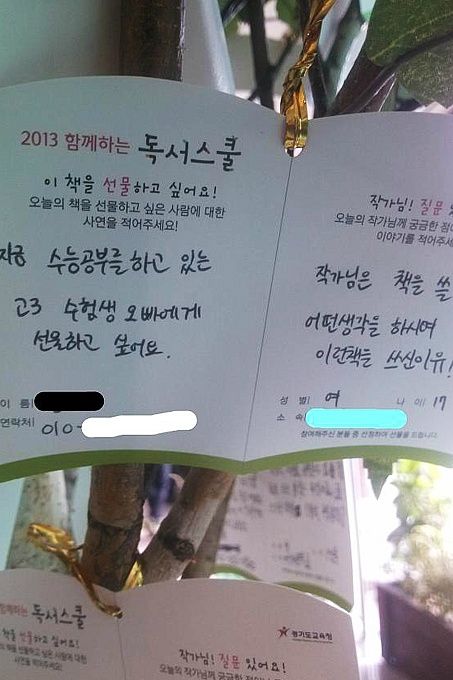 2013 함께하는 독서스쿨
이 책을 선물하고 싶어요!
오늘의 책을 선물하고 싶은 사람에 대한
사연을 적어주세요!
수능공부를 하고 있는
고3 수험생 오빠에게
선물하고 싶어요.
이 름
연락처 010-
작가님! 질문
오늘의 작가님께 궁금한 점
이야기를 적어주세
작가님은 책을 쓸
어떤생각을 하시며
이런책들 쓰신이유!
성 별 여 나 이 17
소 속
참여해주신 분들 중 선정하여 선물을 드립니다.
함께하는 독서스쿨
책을 선물하고 싶어요!
책을 선물하고 싶은 사람에 대한
사연을 적어주세요!
경기도교육청
작가님! 질문 있어요!
오늘의 작가님께 궁금한 점이나